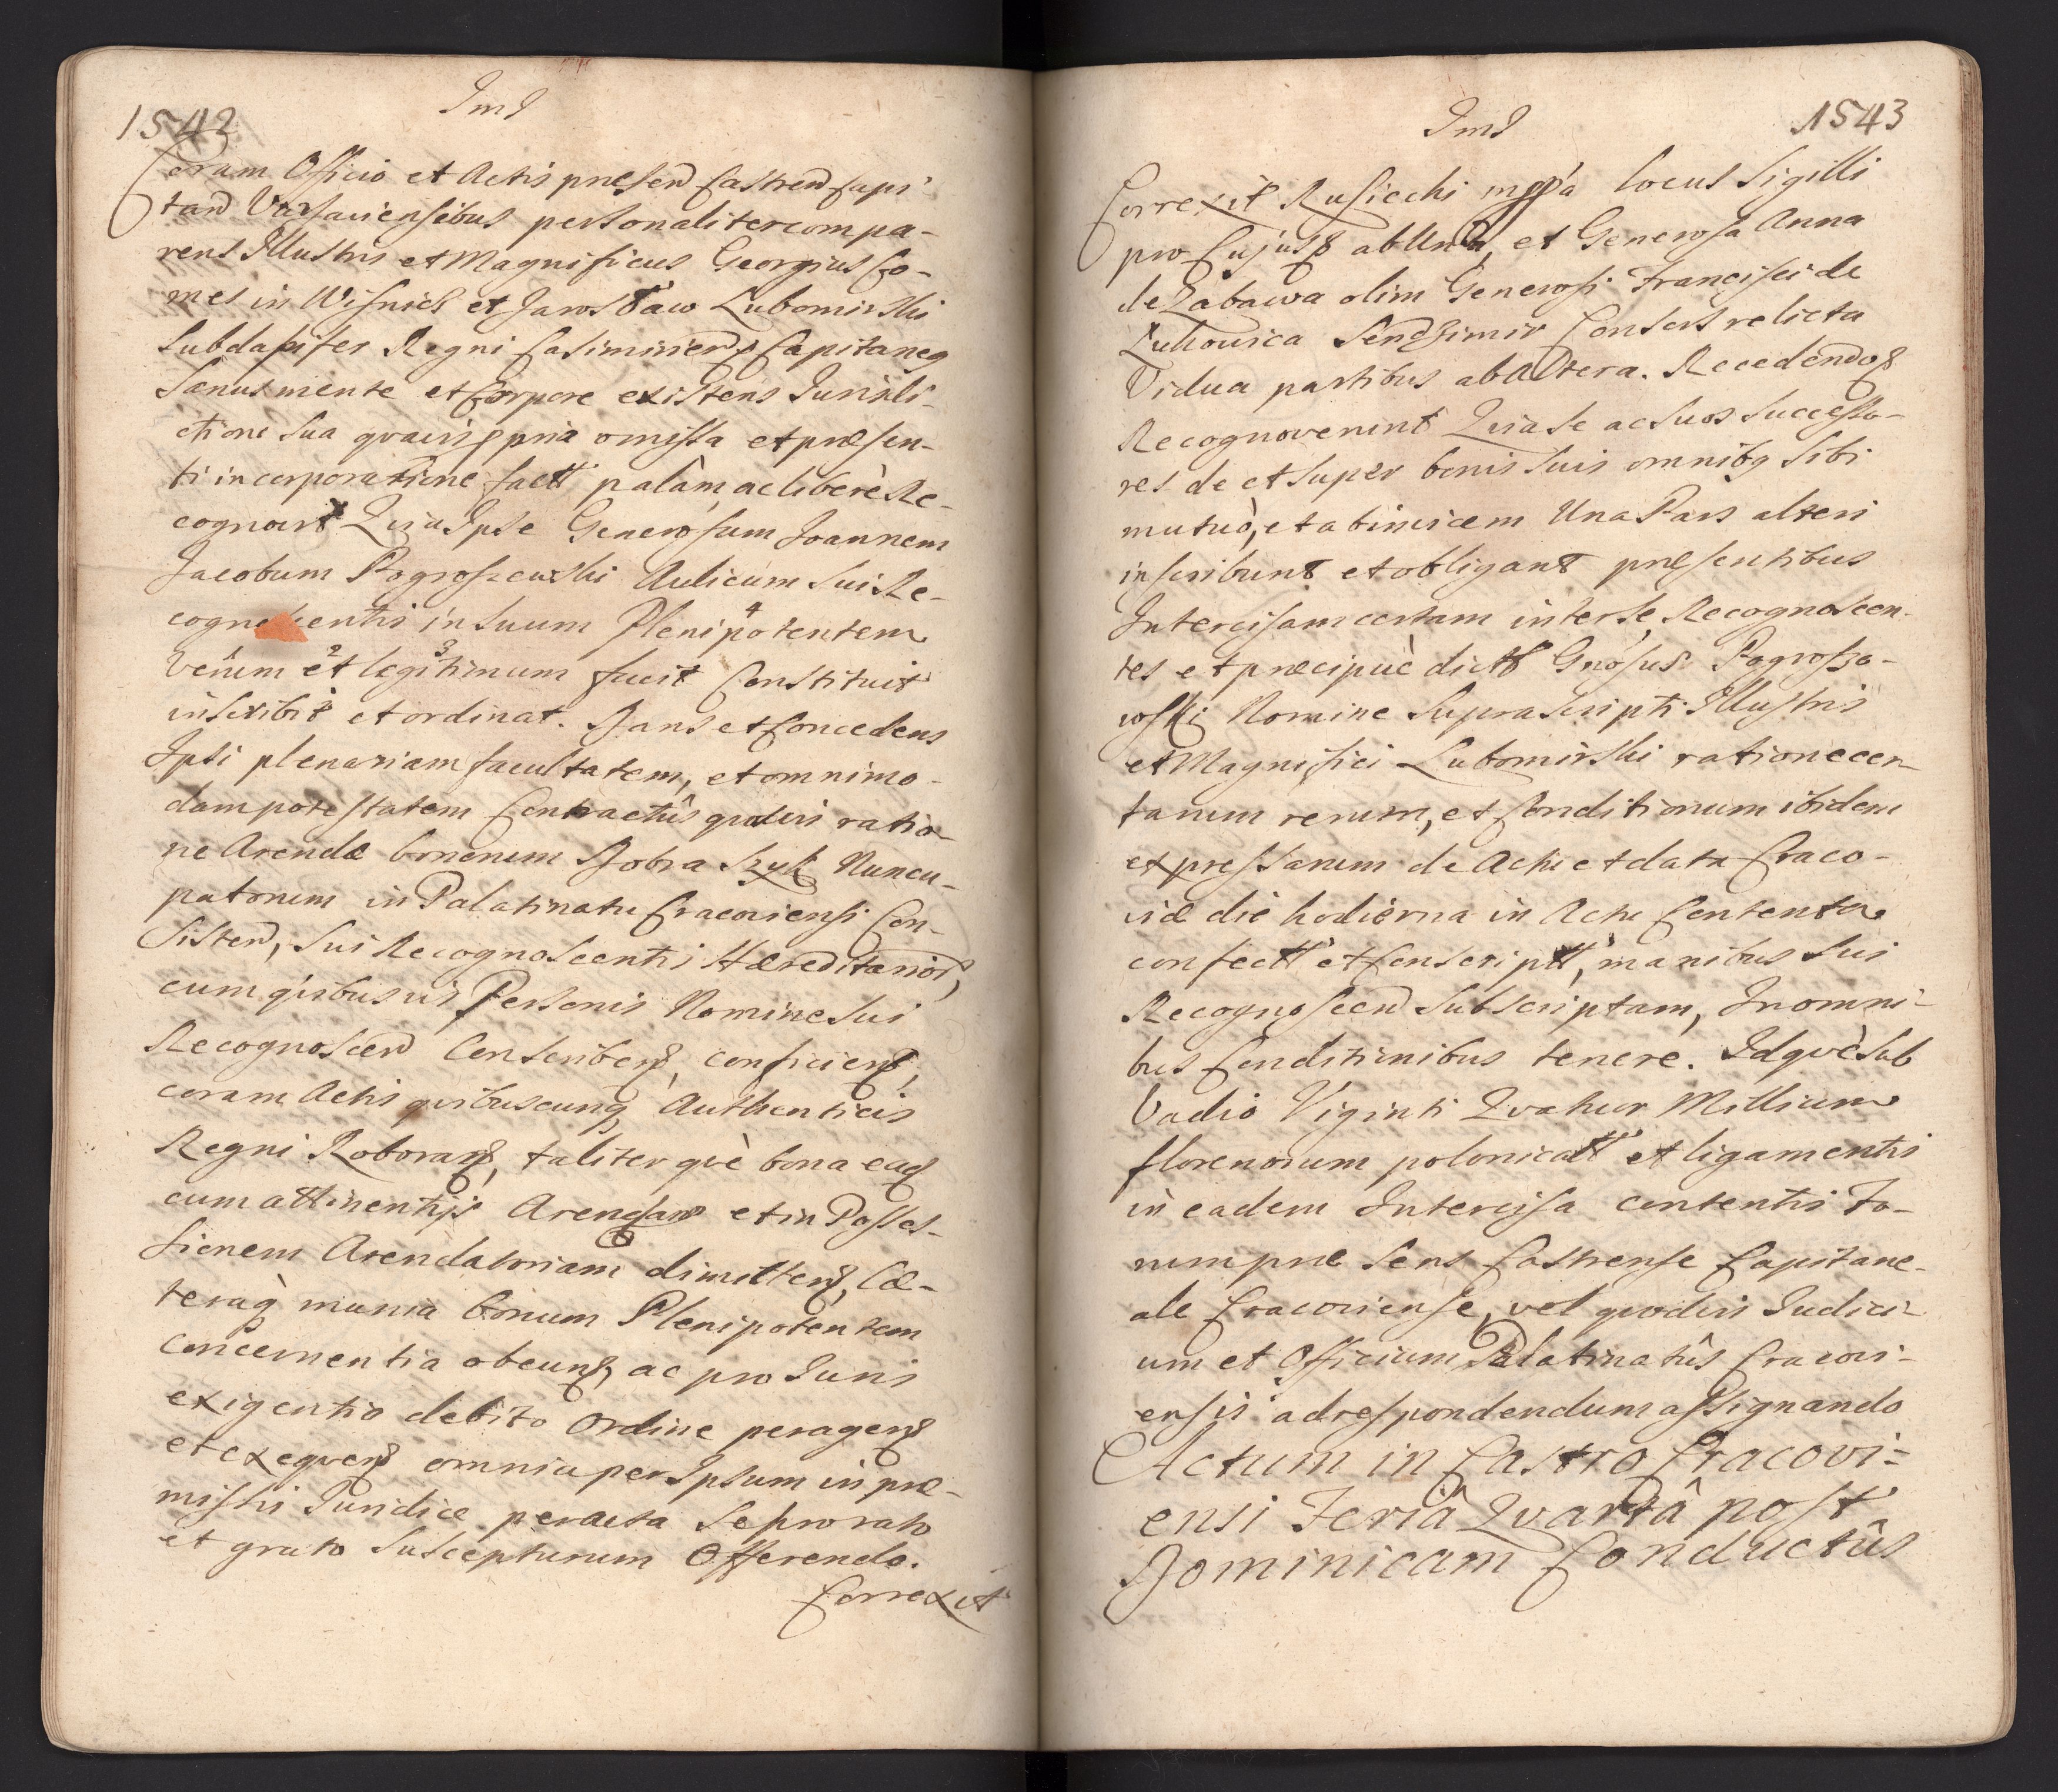 1542
Imd
Coram Officio et Actis præsen Castren Capi
tan Varsaviensibus personaliter compa-
rens Illustris et Magnificus Georgius Co-
mes in Wisnicz et Jarosław Lubomirski
Subdapifer Regni Casimirien Capitaneg
Sanus mente et Corpore existens Jurisdi-
ctione sua qvavis ppria omissa et præsen-
ti incorporatione factt palàm ac liberè Re-
cognovit Qvia Ipse Generosum Joannem
Jacobum Pogroszewski Aulicum sui Re-
cogno entis in suum Plenipotentem
verum et legitimum fecit Constituit
inscribit et ordinat. Dans et Concedens
Ipsi plenariam facultatem, et omnimo-
dam potestatem Contractûs qvovis ratio-
ne Arendæ bonorum Dobra Szyk Nuncu-
patorum in Palatinatu Cracoviensi Con-
sisten, sui Recognoscentis Hæreditarior,
cum qvibusvis Personis Nomine sui
Recognoscen Conscribend, conficiend,
coram Actis qvibuscunq Authenticis
Regni Roborand, taliterqvè bona ead
cum attinentijs Arendan et in Posses-
sionem Arendatoriam dimittend, Cæ-
teraq munia bonum Plenipotentem
Concernentia obeund, ac pro Juris
exigentia debito Ordine peragend
et exeqvend omnia per Ipsum in præ-
missis Juridice peracta se pro rato
et grato suscepturum Offerendo.
Correxit
Imd
1543
Correxit Rusiecki mppa locus Sigilli
pro Cujus ab Una, et Generosa Anna
de Zabawa olim Generosi Francisci de
Zukowica Sendzimir Consors relicta
Vidua partibus ab Altera. Recedendo
Recognoverunt Qvia se ac suos Successo-
res de et super bonis suis omnibq sibi
mutuò, et ab invicem Una Pars alteri
inscribunt et obligant præsentibus
Intercisam certam inter se Recognoscen-
tes et præcipuè dictt Gnosus Pogrosze-
wski Nomine suprascripti Illustris
et Magnifici Lubomirski ratione cer-
tarum rerum, et Conditionum ibidem
expressarum de Actu et data Craco-
viæ die hodierna in Actu Contenta
confectt et Conscriptt, manibus sui
Recognoscen Subscriptam, In omni-
bus Conditionibus tenere. Idqvè sub
Vadio Viginti Qvatuor Millium
florenorum polonicatt et ligamentis
in eadem Intercisa contentis Fo-
rum præsens Castrense Capitane-
ale Cracoviense, vel qvodvis Judici-
um et Officium Palatinatûs Cracovi-
ensis ad respondendum assignando
Actum in Castro Cracovi-
ensi Feriâ Qvartâ post
Dominicam Conductûs